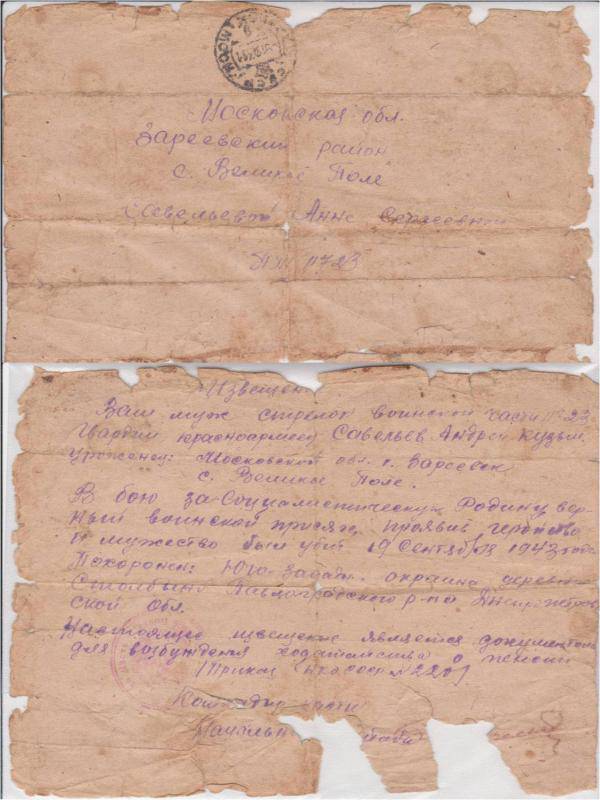 СССР
Московская обл.
Зареевский район
с. Великое Поле
Савельевой Анне Серасеевной
ПП 11723
Извещен
Ваш муж стрелок воинской части 11723
Гвардии красноармеец Савельев Андрей Кузьм
Уроженец: Московской обл. г. Зареевск
с. Великое Поле.
В бою за Социалистическую Родину вер-
ный воинской присяге, проявив геройство
и мужество был убит 19 Сентября 1943 года
Похоронен: Юго-Запад. окраина деревни
Павлоградского р-на Днепропетров
ской обл.
Настоящее извещение является документом
для возбуждения ходатайства о пенсии
Приказ СССР № 220
Командир части
Начальн